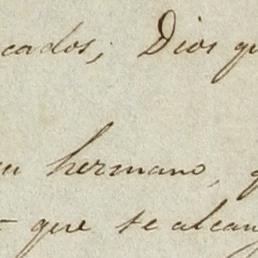 cados; Dios qu
su hermano, q
que se alcan